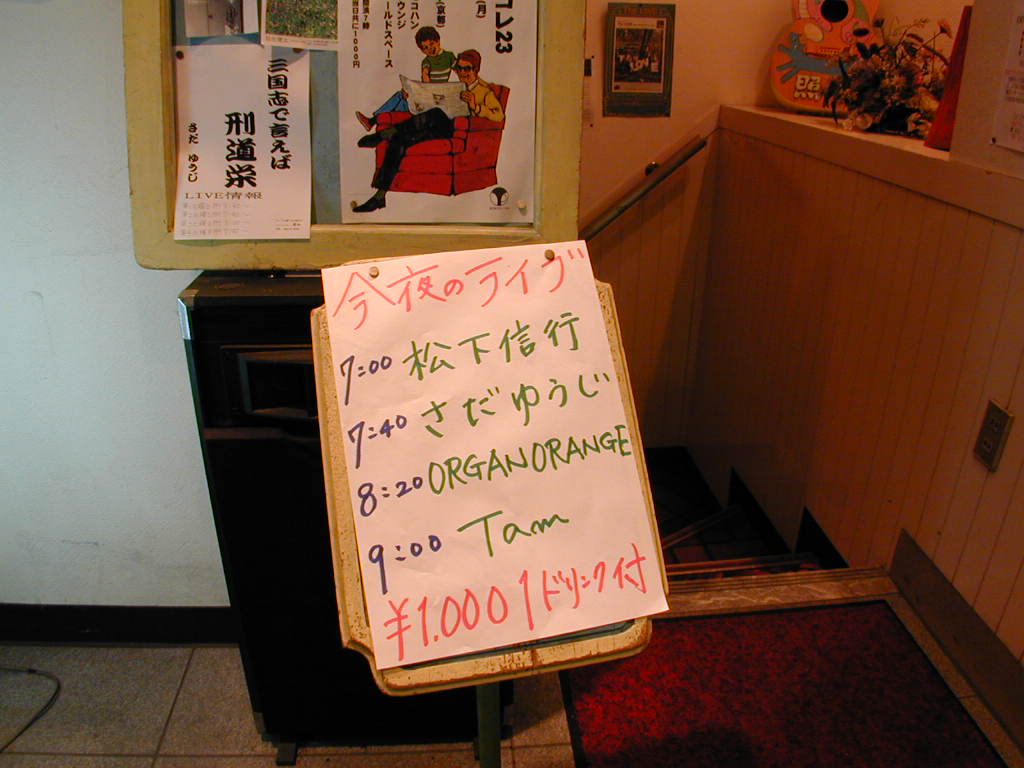 コレ23
(月)
(京都)
コハン
ウンジ
ールドスペース
当日共に1000円
三国志で言えば
刑道栄
さだ ゆうじ
LIVE情報
今夜のライブ
7:00 松下信行
7:40 さだゆうじ
8:20 ORGANORANGE
9:00 Tam
¥1.000 1ドリンク付